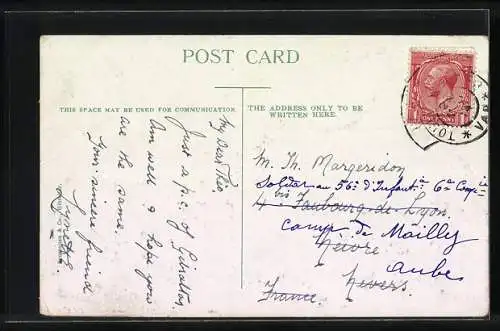 POST CARD
THIS SPACE MAY BE USED FOR COMMUNICATION.
THE ADDRESS ONLY TO BE
WRITTEN HERE.
My Dear Theo
Just a p.c. of Gibraltar
Am well & hope you
are the same.
Your sincere friend
M. Th. Margeridon
Soldat au 56e d'Infantie 6e Compie
4 bis Faubourg de Lyon
Camp de Mailly
Nièvre
Aube
Nevers
France
ONE PENNY
VAR